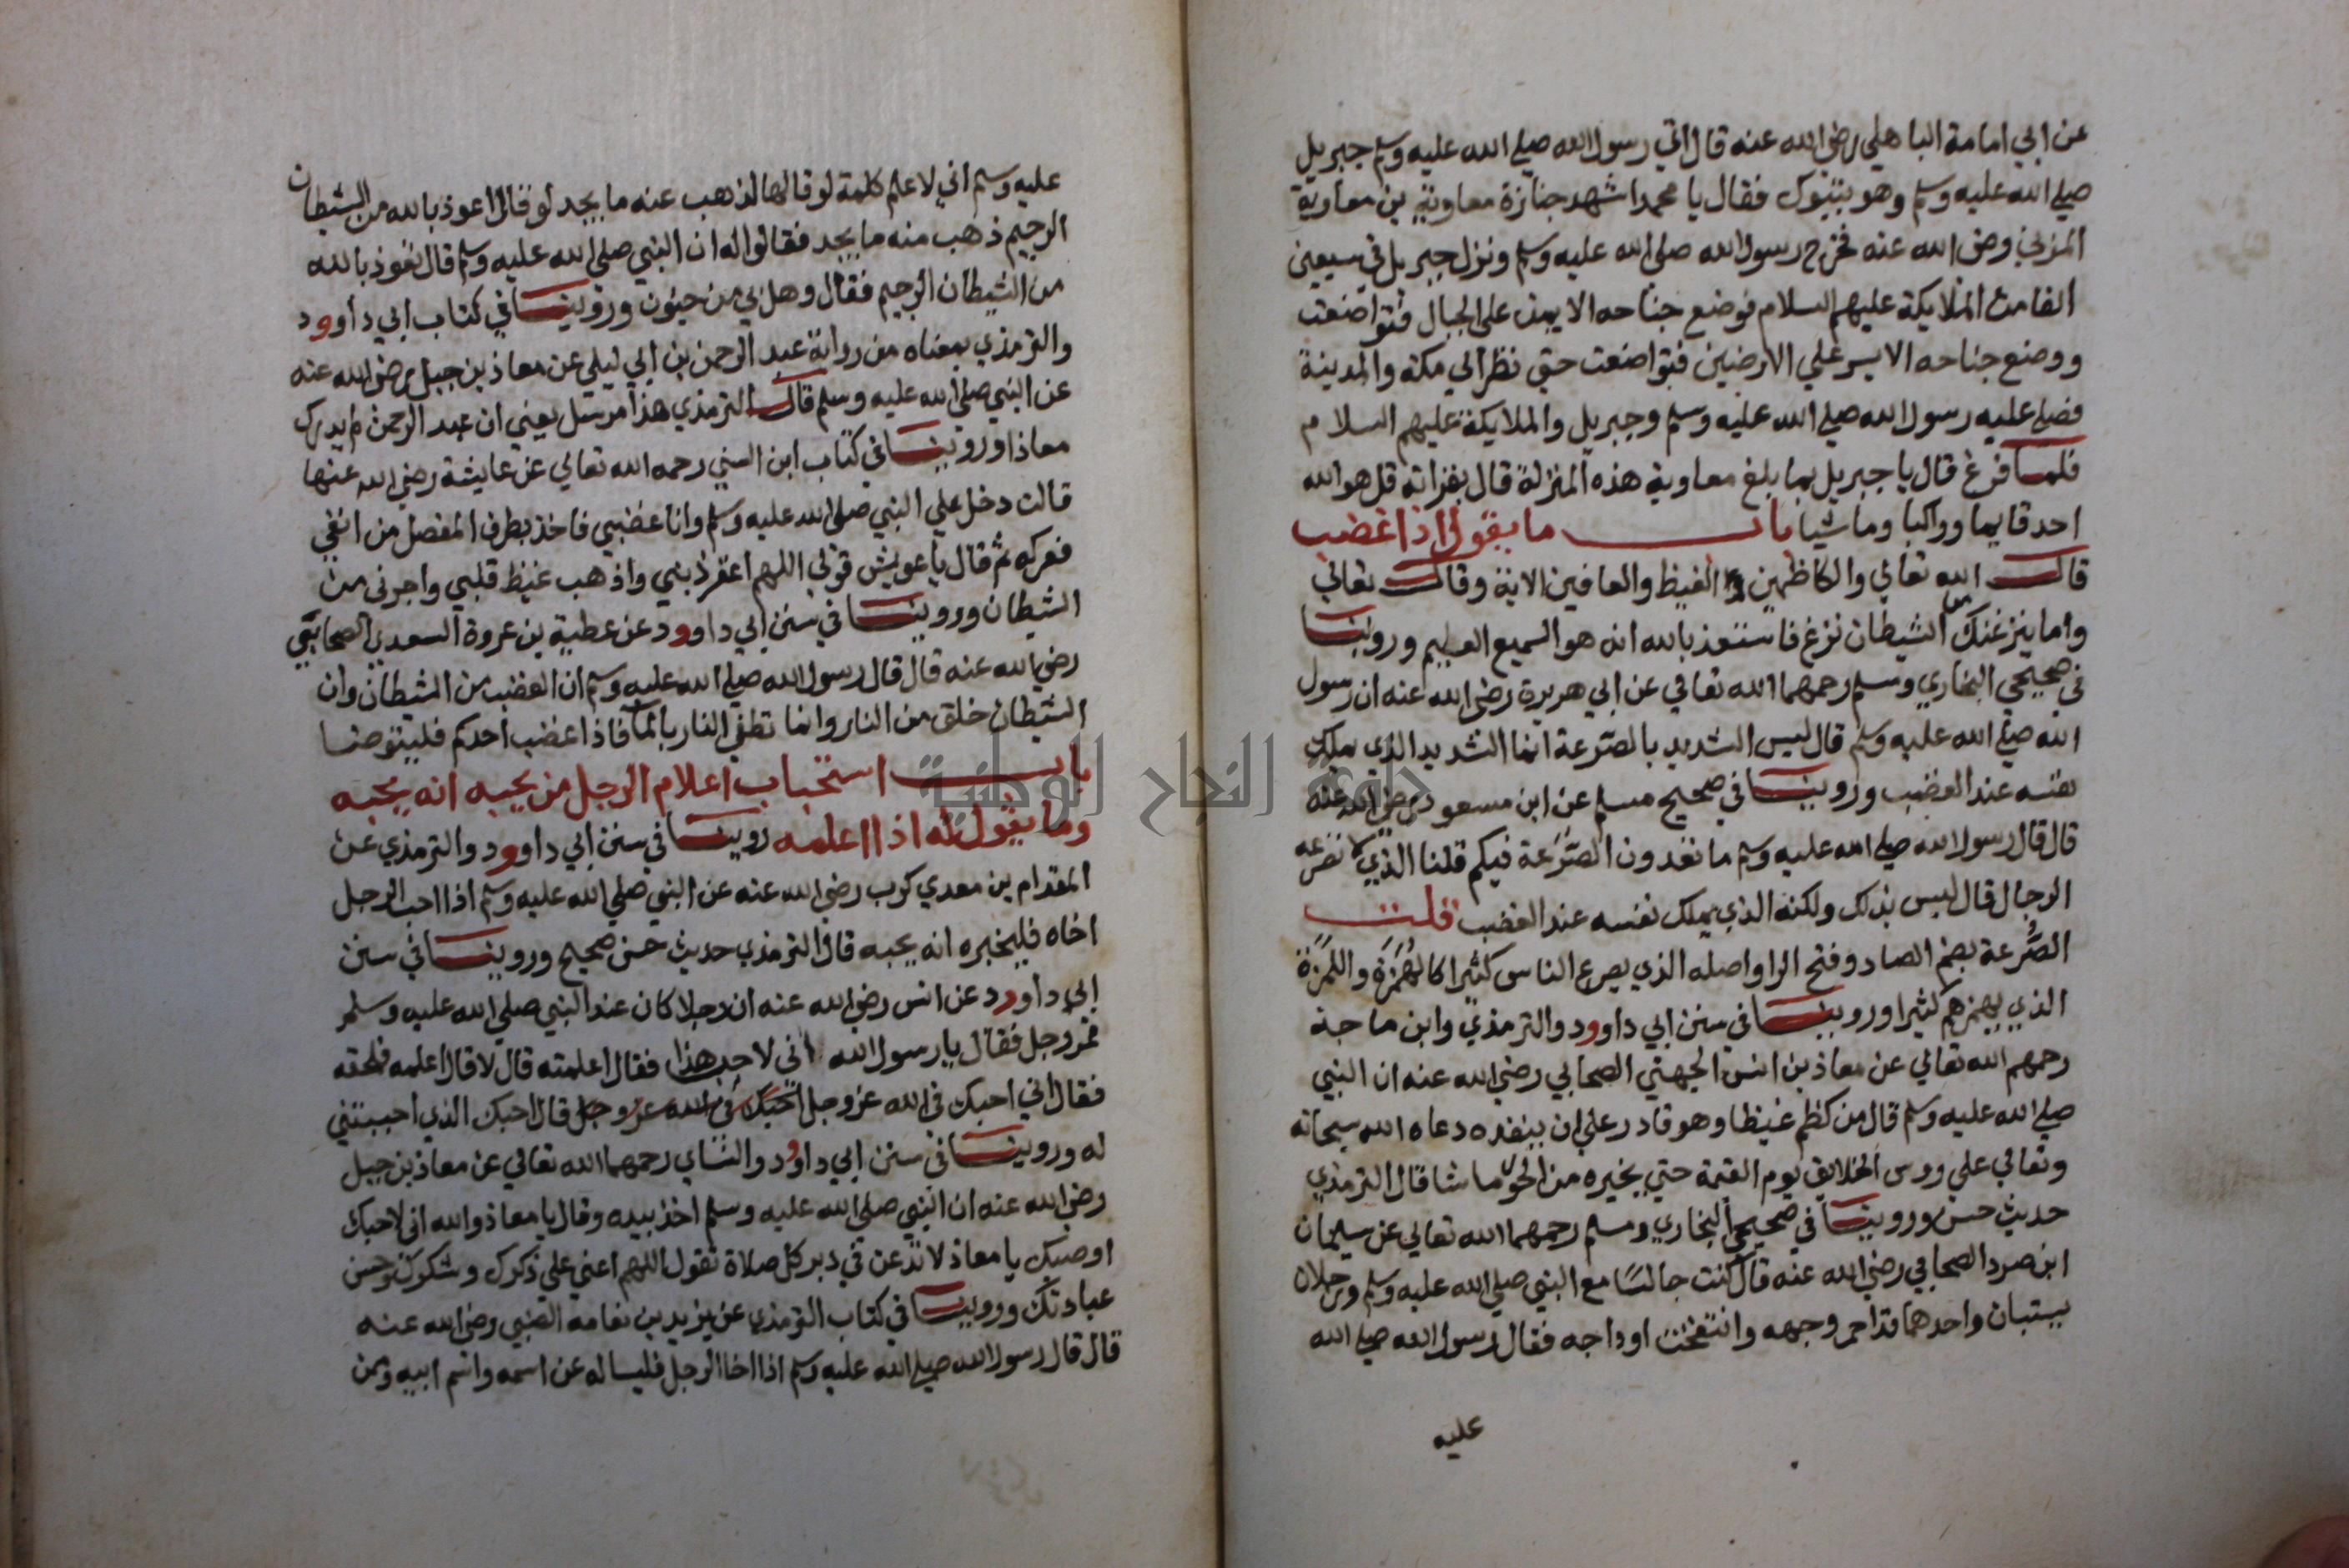 عن ابي امامة الباهلي رضي الله عنه قال اتي رسول الله صلي الله عليه وسلم جبريل
صلي الله عليه وسلم وهو بتبوك فقال يا محمد اشهد جنازة معاوية بن معاوية
المزني رضي الله عنه فخرج رسول الله صلي الله عليه وسلم ونزل جبريل في سبعين
الفا من الملايكة عليهم السلام فوضع جناحه الايمن على الجبال فتواضعت
ووضع جناحه الايسر علي الارضين فتواضعت حتي نظر الي مكة والمدينة
فصلي عليه رسول الله صلي الله عليه وسلم وجبريل والملايكة عليهم السلام
فلما فرغ قال يا جبريل بما بلغ معاوية هذه المنزلة قال بقراته قل هو الله
احد قايما وراكبا وماشيا باب ما يقول اذا غضب
قال الله تعالي والكاظمين الغيظ والعافين الاية وقال تعالي
واما ينزغنك من الشيطان نزغ فاستعذ بالله انه هو السميع العليم وروينا
في صحيحي البخاري ومسلم رحمهما الله تعالي عن ابي هريرة رضي الله عنه ان رسول
الله صلي الله عليه وسلم قال ليس الشديد بالصرعة انما الشديد الذي يملك
نفسه عند الغضب وروينا في صحيح مسلم عن ابن مسعود رضي الله عنه
قال قال رسول الله صلي الله عليه وسلم ما تعدون الصرعة فيكم قلنا الذي لا تصرعه
الرجال قال ليس بذلك ولكنه الذي يملك نفسه عند الغضب قلت
الصرعة بضم الصاد وفتح الرا واصله الذي يصرع الناس كثيرا كالهمزة واللمزة
الذي يهمزهم كثيرا وروينا في سنن ابي داوود والترمذي وابن ماجة
رحمهم الله تعالي عن معاذ بن انس الجهني الصحابي رضي الله عنه ان النبي
صلي الله عليه وسلم قال من كظم غيظا وهو قادر علي ان ينفذه دعاه الله سبحانه
وتعالي علي روس الخلايق يوم القيمة حتي يخيره من الحور ما شا قال الترمذي
حديث حسن وروينا في صحيحي البخاري ومسلم رحمهما الله تعالي عن سليمان
ابن صرد الصحابي رضي الله عنه قال كنت جالسا مع النبي صلي الله عليه وسلم ورجلان
يستبان واحدهما قد احمر وجهه وانتفخت اوداجه فقال رسول الله صلي الله
عليه
عليه وسلم اني لاعلم كلمة لو قالها لذهب عنه ما يجد لو قال اعوذ بالله من الشيطان
الرجيم ذهب منه ما يجد فقالوا له ان النبي صلي الله عليه وسلم قال تعوذ بالله
من الشيطان الرجيم فقال وهل بي من جنون وروينا في كتاب ابي داوود
والترمذي بمعناه من رواية عبد الرحمن بن ابي ليلي عن معاذ بن جبل رضي الله عنه
عن النبي صلي الله عليه وسلم قال الترمذي هذا مرسل يعني ان عبد الرحمن لم يدرك
معاذا وروينا في كتاب ابن السني رحمه الله تعالي عن عايشة رضي الله عنها
قالت دخل علي النبي صلي الله عليه وسلم وانا غضبي فاخذ بطرف المفصل من انفي
فعركه ثم قال يا عويش قولي اللهم اغفر ذنبي واذهب غيظ قلبي واجرني من
الشيطان وروينا في سنن ابي داوود عن عطية بن عروة السعدي الصحابي
رضي الله عنه قال قال رسول الله صلي الله عليه وسلم ان الغضب من الشيطان وان
الشيطان خلق من النار وانما تطفي النار بالما فاذا غضب احدكم فليتوضا
باب استحباب اعلام الرجل من يحبه انه يحبه
وما يقول له اذا اعلمه روينا في سنن ابي داوود والترمذي عن
المقدام بن معدي كرب رضي الله عنه عن النبي صلي الله عليه وسلم اذا احب الرجل
اخاه فليخبره انه يحبه قال الترمذي حديث حسن صحيح وروينا في سنن
ابي داوود عن انس رضي الله عنه ان رجلا كان عند النبي صلي الله عليه وسلم
فمر رجل فقال يا رسول الله اني لاحب هذا فقال اعلمته قال لا قال اعلمه فلحقه
فقال اني احبك في الله عز وجل احبك في الله عز وجل قال احبك الذي احببتني
له وروينا في سنن ابي داوود والنساي رحمهما الله تعالي عن معاذ بن جبل
رضي الله عنه ان النبي صلي الله عليه وسلم اخذ بيده وقال يا معاذ والله اني لاحبك
اوصيك يا معاذ لا تدعن في دبر كل صلاة تقول اللهم اعني علي ذكرك وشكرك وحسن
عبادتك وروينا في كتاب الترمذي عن يزيد بن نعامة الضبي رضي الله عنه
قال قال رسول الله صلي الله عليه وسلم اذا اخا الرجل فليساله عن اسمه واسم ابيه وممن
جامعة النجاح الوطنية